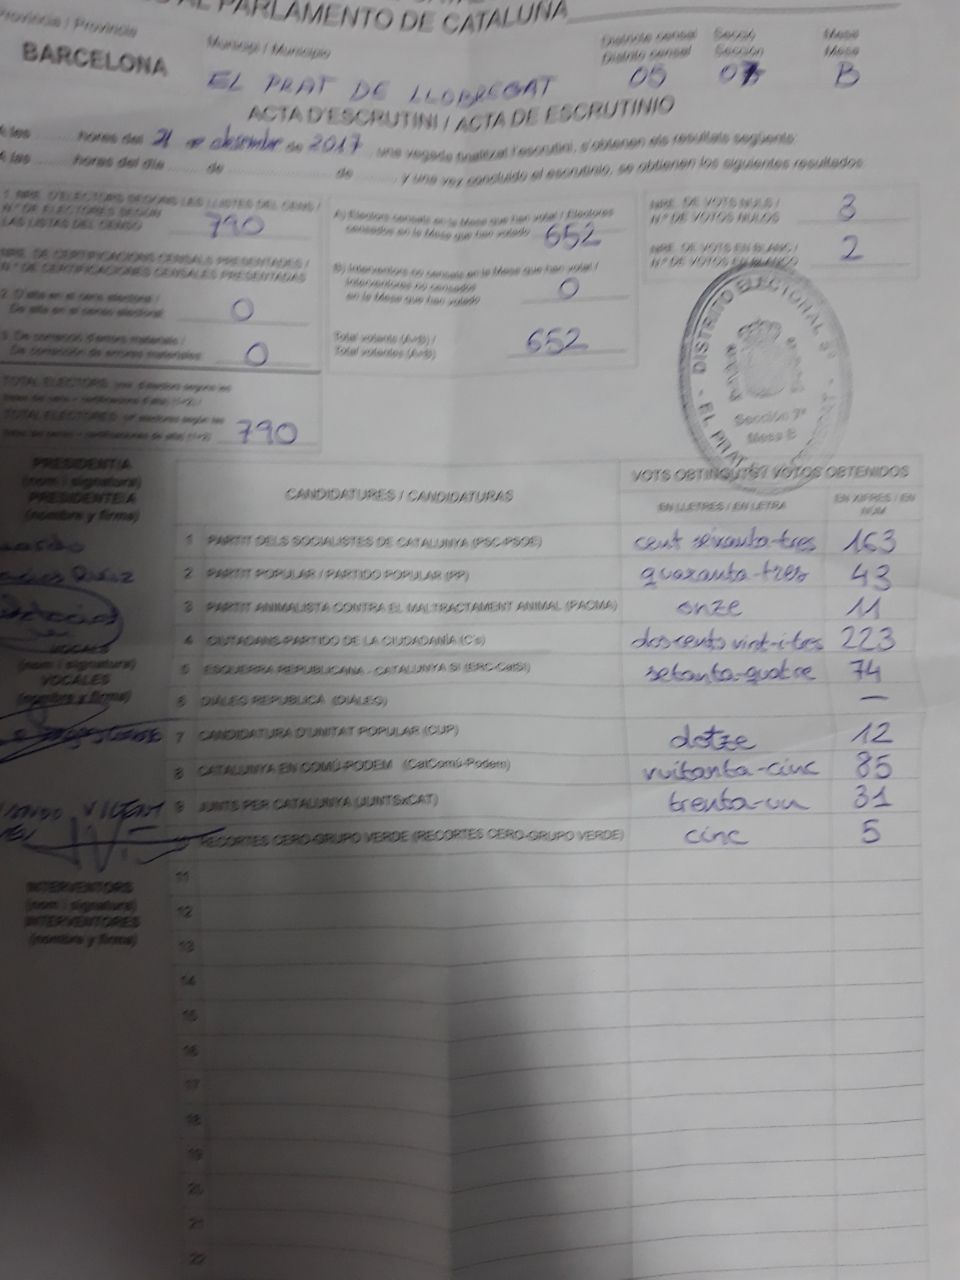 AL PARLAMENTO DE CATALUÑA
Provincia / Provincia
BARCELONA
Municipi / Municipio
EL PRAT DE LLOBREGAT
Districte censal
Distrito censal
05
Secció
Sección
Mesa
Mesa
B
ACTA D'ESCRUTINI / ACTA DE ESCRUTINIO
A les ........ hores del 21 de desembre de 2017, una vegada finalitzat l'escrutini, s'obtenen els resultats següents:
A las ........ horas del día ........ de ........ de ........, y una vez concluido el escrutinio, se obtienen los siguientes resultados:
1. NRE. D'ELECTORS SEGONS LES LLISTES DEL CENS /
Nº DE ELECTORES SEGÚN
LAS LISTAS DEL CENSO
790
NRE. DE CERTIFICACIONS CENSALS PRESENTADES /
Nº DE CERTIFICACIONES CENSALES PRESENTADAS
2. D'alta en el cens electoral /
De alta en el censo electoral
0
3. De correcció d'errors materials /
De corrección de errores materiales
0
TOTAL ELECTORS
TOTAL ELECTORES
790
A) Electors censats en la Mesa que han votat / Electores
censados en la Mesa que han votado
652
B) Interventors no censats en la Mesa que han votat /
Interventores no censados
en la Mesa que han votado
0
Total votants (A+B) /
Total votantes (A+B)
652
NRE. DE VOTS NULS /
Nº DE VOTOS NULOS
3
NRE. DE VOTS EN BLANC /
Nº DE VOTOS EN BLANCO
2
DISTRITO ELECTORAL 5º
Sección 7ª
Mesa B
EL PRAT
PRESIDENT/A
(nom i signatura)
PRESIDENTE/A
(nombre y firma)
VOCALS
(nom i signatura)
VOCALES
(nombre y firma)
VICENT
INTERVENTORS
(nom i signatura)
INTERVENTORES
(nombre y firma)
CANDIDATURES / CANDIDATURAS
VOTS OBTINGUTS / VOTOS OBTENIDOS
EN LLETRES / EN LETRA
EN XIFRES / EN NÚM
1 PARTIT DELS SOCIALISTES DE CATALUNYA (PSC-PSOE) cent seixanta-tres 163
2 PARTIT POPULAR / PARTIDO POPULAR (PP) quaranta-tres 43
3 PARTIT ANIMALISTA CONTRA EL MALTRACTAMENT ANIMAL (PACMA) onze 11
4 CIUTADANS-PARTIDO DE LA CIUDADANÍA (C's) doscents vint-i-tres 223
5 ESQUERRA REPUBLICANA - CATALUNYA SÍ (ERC-CatSí) setanta-quatre 74
6 DIÀLEG REPÚBLICA (DIÀLEG) —
7 CANDIDATURA D'UNITAT POPULAR (CUP) dotze 12
8 CATALUNYA EN COMÚ-PODEM (CatComú-Podem) vuitanta-cinc 85
9 JUNTS PER CATALUNYA (JUNTSxCAT) trenta-un 31
10 RECORTES CERO-GRUPO VERDE (RECORTES CERO-GRUPO VERDE) cinc 5
11
12
13
14
15
16
17
18
19
20
21
22